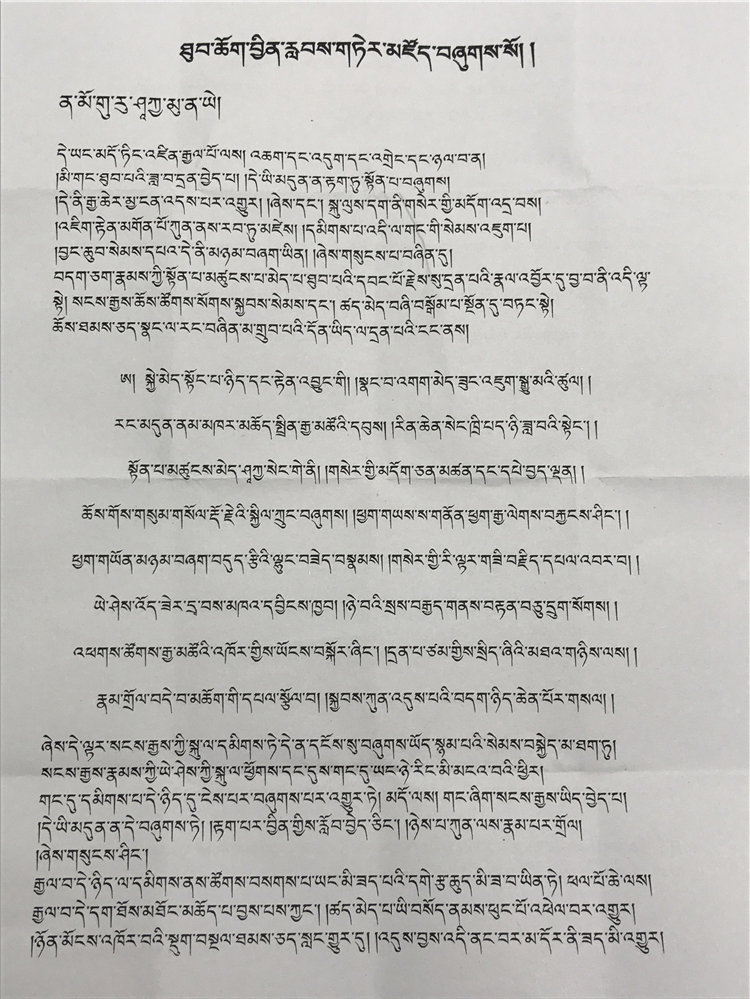 ཐུབ་ཆོག་བྱིན་རླབས་གཏེར་མཛོད་བཞུགས་སོ། །
ན་མོ་གུ་རུ་ཤཱཀྱ་མུ་ན་ཡེ།
དེ་ཡང་མདོ་ཏིང་འཛིན་རྒྱལ་པོ་ལས། འཆག་དང་འདུག་དང་འགྲེང་དང་ཉལ་བ་ན།
།མི་གང་ཐུབ་པའི་ཟླ་བ་དྲན་བྱེད་པ། །དེ་ཡི་མདུན་ན་རྟག་ཏུ་སྟོན་པ་བཞུགས།
།དེ་ནི་རྒྱ་ཆེར་མྱ་ངན་འདས་པར་འགྱུར། །ཞེས་དང་། སྐུ་ལུས་དག་ནི་གསེར་གྱི་མདོག་འདྲ་བས།
།འཇིག་རྟེན་མགོན་པོ་ཀུན་ནས་རབ་ཏུ་མཛེས། །དམིགས་པ་འདི་ལ་གང་གི་སེམས་འཇུག་པ།
།བྱང་ཆུབ་སེམས་དཔའ་དེ་ནི་མཉམ་བཞག་ཡིན། །ཞེས་གསུངས་པ་བཞིན་དུ།
བདག་ཅག་རྣམས་ཀྱི་སྟོན་པ་མཚུངས་པ་མེད་པ་ཐུབ་པའི་དབང་པོ་རྗེས་སུ་དྲན་པའི་རྣལ་འབྱོར་དུ་བྱ་བ་ནི་འདི་ལྟ་
སྟེ། སངས་རྒྱས་ཆོས་ཚོགས་སོགས་སྐྱབས་སེམས་དང་། ཚད་མེད་བཞི་བསྒོམ་པ་སྔོན་དུ་བཏང་སྟེ།
ཆོས་ཐམས་ཅད་སྣང་ལ་རང་བཞིན་མ་གྲུབ་པའི་དོན་ཡིད་ལ་དྲན་པའི་ངང་ནས།
ཨ། སྐྱེ་མེད་སྟོང་པ་ཉིད་དང་རྟེན་འབྱུང་གི། །སྣང་བ་འགག་མེད་ཟུང་འཇུག་སྒྱུ་མའི་ཚུལ། །
རང་མདུན་ནམ་མཁར་མཆོད་སྤྲིན་རྒྱ་མཚོའི་དབུས། །རིན་ཆེན་སེང་ཁྲི་པད་ཉི་ཟླ་བའི་སྟེང་། །
སྟོན་པ་མཚུངས་མེད་ཤཱཀྱ་སེང་གེ་ནི། །གསེར་གྱི་མདོག་ཅན་མཚན་དང་དཔེ་བྱད་ལྡན། །
ཆོས་གོས་གསུམ་གསོལ་རྡོ་རྗེའི་སྐྱིལ་ཀྲུང་བཞུགས། །ཕྱག་གཡས་ས་གནོན་ཕྱག་རྒྱ་ལེགས་བརྐྱངས་ཤིང་། །
ཕྱག་གཡོན་མཉམ་བཞག་བདུད་རྩིའི་ལྷུང་བཟེད་བསྣམས། །གསེར་གྱི་རི་ལྟར་གཟི་བརྗིད་དཔལ་འབར་བ། །
ཡེ་ཤེས་འོད་ཟེར་དྲྭ་བས་མཁའ་དབྱིངས་ཁྱབ། །ཉེ་བའི་སྲས་བརྒྱད་གནས་བརྟན་བཅུ་དྲུག་སོགས། །
འཕགས་ཚོགས་རྒྱ་མཚོའི་འཁོར་གྱིས་ཡོངས་བསྐོར་ཞིང་། །དྲན་པ་ཙམ་གྱིས་སྲིད་ཞིའི་མཐའ་གཉིས་ལས། །
རྣམ་གྲོལ་བདེ་བ་མཆོག་གི་དཔལ་སྩོལ་བ། །སྐྱབས་ཀུན་འདུས་པའི་བདག་ཉིད་ཆེན་པོར་གསལ། །
ཞེས་དེ་ལྟར་སངས་རྒྱས་ཀྱི་སྐུ་ལ་དམིགས་ཏེ་དེ་ན་དངོས་སུ་བཞུགས་ཡོད་སྙམ་པའི་སེམས་བསྐྱེད་མ་ཐག་ཏུ།
སངས་རྒྱས་རྣམས་ཀྱི་ཡེ་ཤེས་ཀྱི་སྐུ་ལ་ཕྱོགས་དང་དུས་གང་དུ་ཡང་ཉེ་རིང་མི་མངའ་བའི་ཕྱིར།
གང་དུ་དམིགས་པ་དེ་ཉིད་དུ་ངེས་པར་བཞུགས་པར་འགྱུར་ཏེ། མདོ་ལས། གང་ཞིག་སངས་རྒྱས་ཡིད་བྱེད་པ།
།དེ་ཡི་མདུན་ན་དེ་བཞུགས་ཏེ། །རྟག་པར་བྱིན་གྱིས་རློབ་བྱེད་ཅིང་། །ཉེས་པ་ཀུན་ལས་རྣམ་པར་གྲོལ།
།ཞེས་གསུངས་ཤིང་།
རྒྱལ་བ་དེ་ཉིད་ལ་དམིགས་ནས་ཚོགས་བསགས་པ་ཡང་མི་ཟད་པའི་དགེ་རྩ་ཆུད་མི་ཟ་བ་ཡིན་ཏེ། ཕལ་པོ་ཆེ་ལས།
རྒྱལ་བ་དེ་དག་ཐོས་མཐོང་མཆོད་པ་བྱས་པས་ཀྱང་། །ཚད་མེད་པ་ཡི་བསོད་ནམས་ཕུང་པོ་འཕེལ་བར་འགྱུར།
།ཉོན་མོངས་འཁོར་བའི་སྡུག་བསྔལ་ཐམས་ཅད་སླང་གྱུར་དུ། །འདུས་བྱས་འདི་ནང་བར་མ་དོར་ནི་ཟད་མི་འགྱུར།